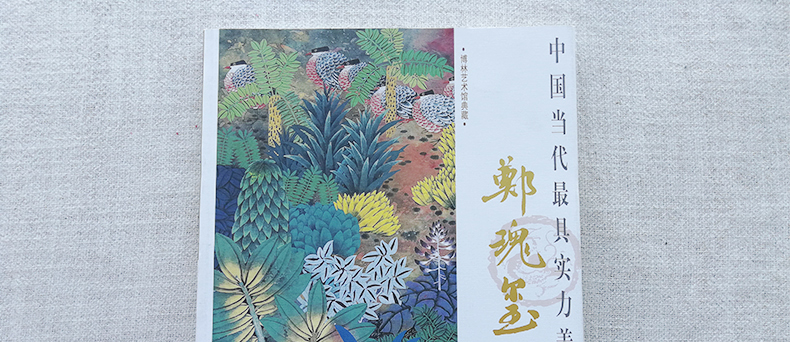 中国当代最具实力
鄭瑰玺
·博林艺术馆典藏·